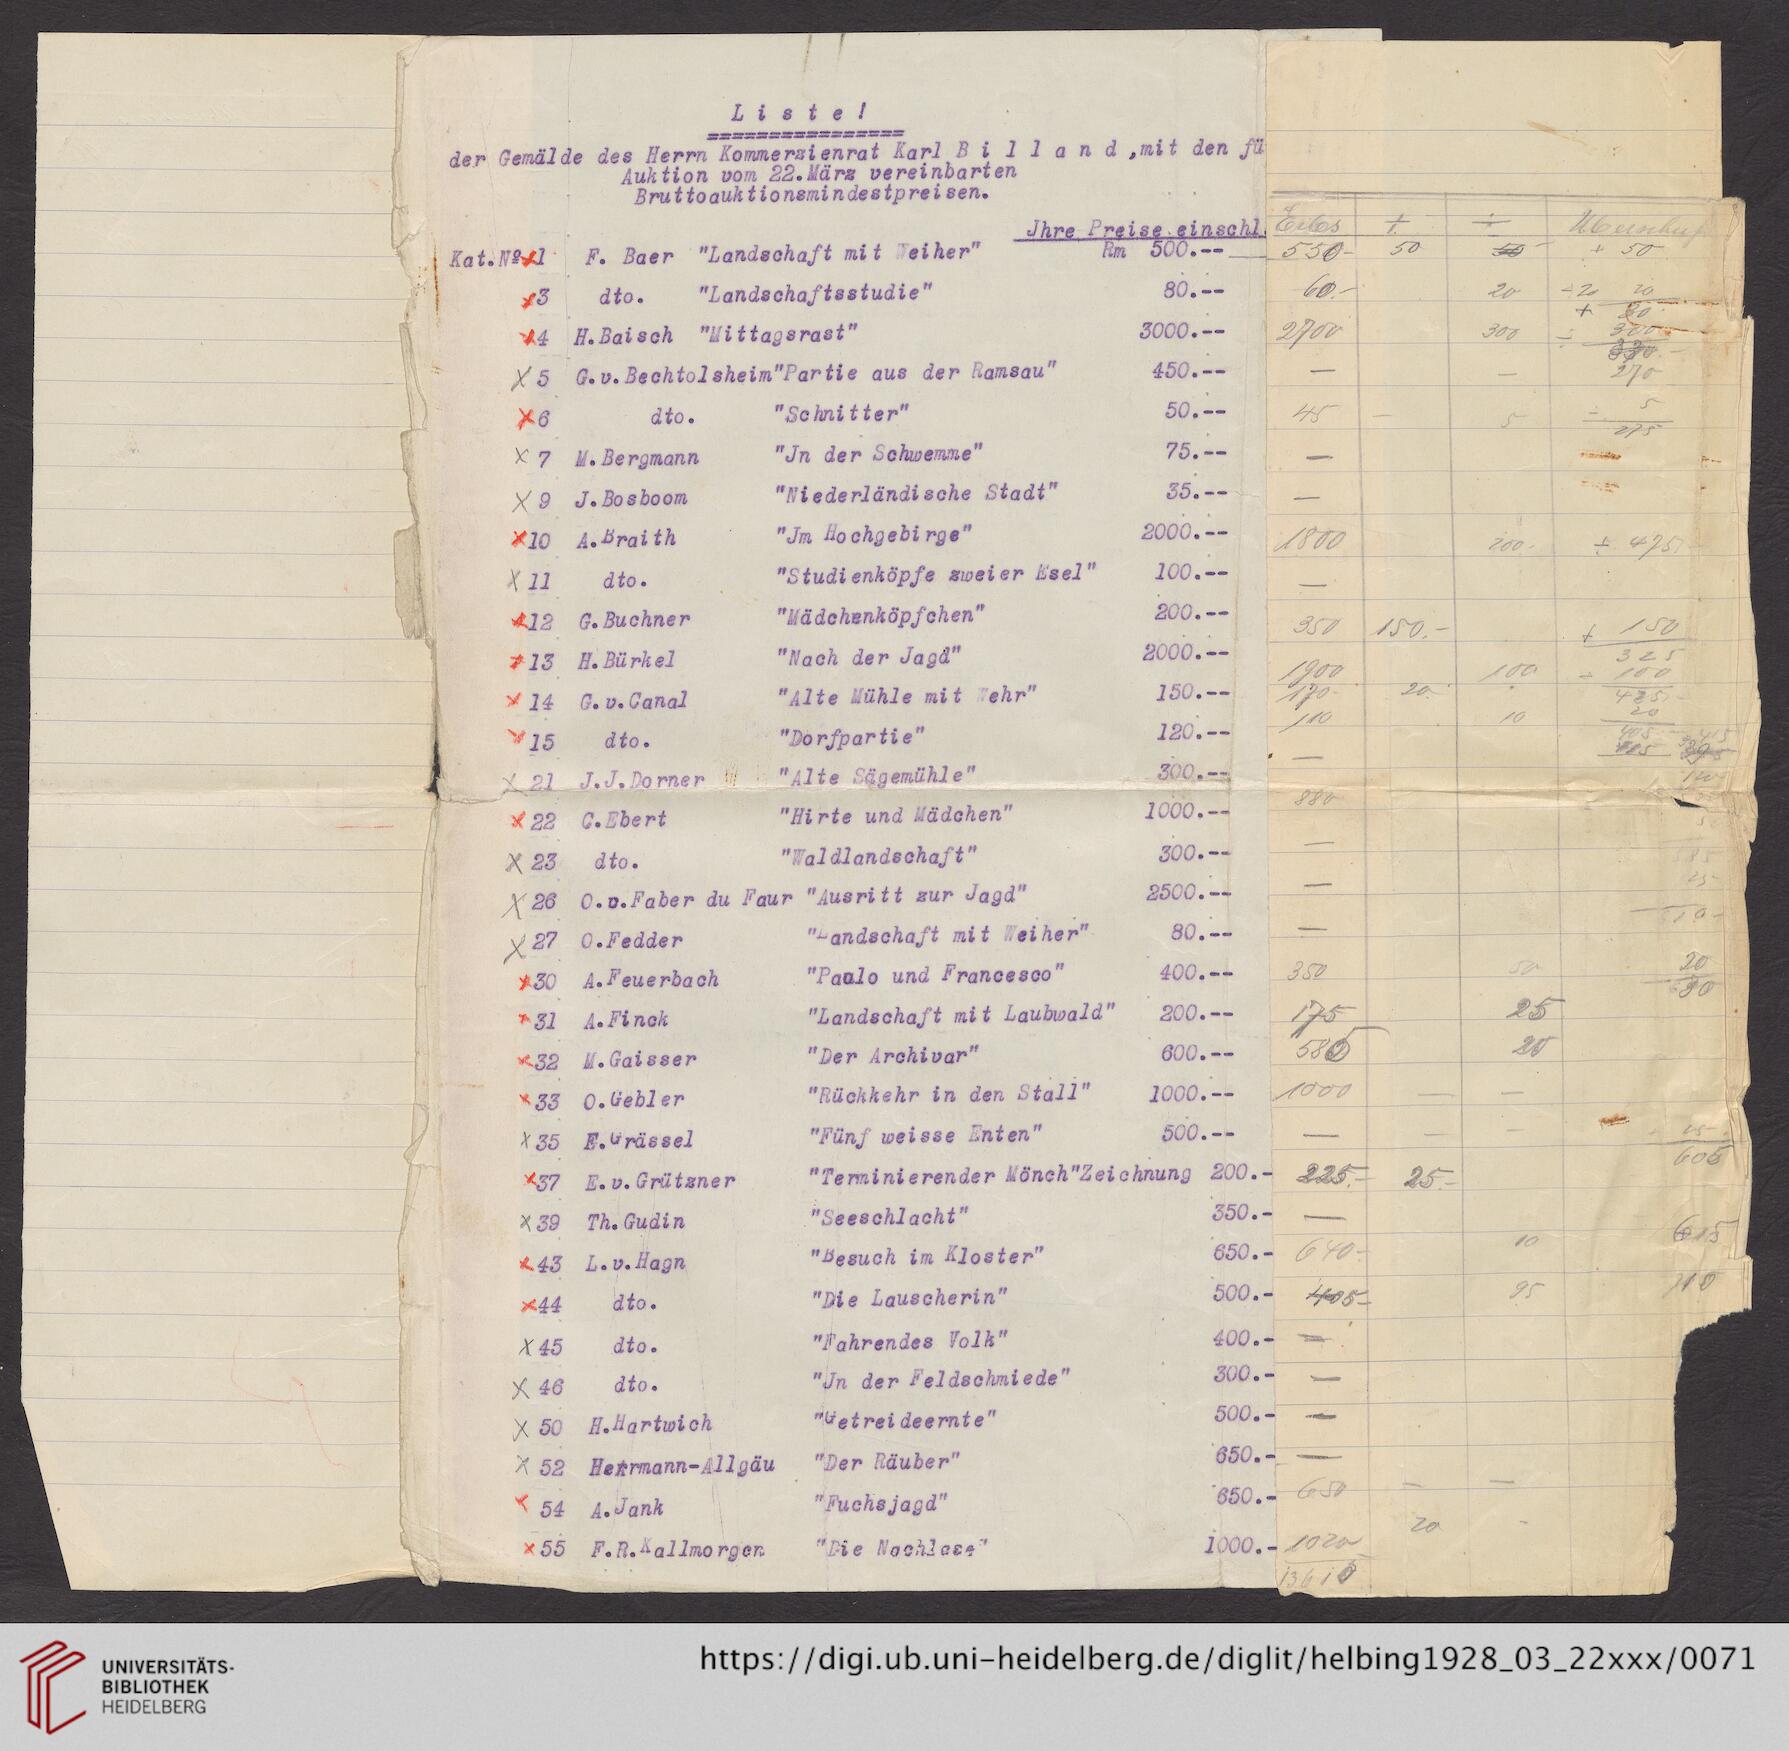 Liste!
================
der Gemälde des Herrn Kommerzienrat Karl B i l l a n d ,mit den fü
Auktion vom 22.März vereinbarten
Bruttoauktionsmindestpreisen.
Jhre Preise einschl
Erlös + ÷
Kat.Nº 1 F. Baer "Landschaft mit Weiher" Rm 500.-- 550- 50 50 + 50
3 dto. "Landschaftsstudie" 80.-- 60.- 20 ÷20 20
+ 30
4 H.Baisch "Mittagsrast" 3000.-- 2700 300 ÷ 300
270
5 G.v.Bechtolsheim"Partie aus der Ramsau" 450.-- — —
6 dto. "Schnitter" 50.-- 45 — 5 ÷ 5
275
7 M.Bergmann "Jn der Schwemme" 75.-- —
9 J.Bosboom "Niederländische Stadt" 35.-- —
10 A.Braith "Jm Hochgebirge" 2000.-- 1800 200.- ÷ 475.-
11 dto. "Studienköpfe zweier Esel" 100.-- —
12 G.Buchner "Mädchenköpfchen" 200.-- 350 150.- + 150
325
13 H.Bürkel "Nach der Jagd" 2000.-- 1900 100 ÷ 100
425.-
14 G.v.Canal "Alte Mühle mit Wehr" 150.-- 170.- 20.- 20
405
15 dto. "Dorfpartie" 120.-- 110 10
21 J.J.Dorner "Alte Sägemühle" 300.-- —
22 C.Ebert "Hirte und Mädchen" 1000.-- 880
23 dto. "Waldlandschaft" 300.-- —
26 O.v.Faber du Faur "Ausritt zur Jagd" 2500.-- —
27 O.Fedder "Landschaft mit Weiher" 80.-- —
30 A.Feuerbach "Paolo und Francesco" 400.-- 350 50 20
31 A.Finck "Landschaft mit Laubwald" 200.-- 175 25
32 M.Gaisser "Der Archivar" 600.-- 580 20
33 O.Gebler "Rückkehr in den Stall" 1000.-- 1000 — —
35 E.Grässel "Fünf weisse Enten" 500.-- — — —
605
37 E.v.Grützner "Terminierender Mönch"Zeichnung 200.- 225.- 25.-
39 Th.Gudin "Seeschlacht" 350.- — 615
43 L.v.Hagn "Besuch im Kloster" 650.- 640- 10
44 dto. "Die Lauscherin" 500.- 405- 95 710
45 dto. "Fahrendes Volk" 400.- —
46 dto. "Jn der Feldschmiede" 300.- —
50 H.Hartwich "Getreideernte" 500.- —
52 Herrmann-Allgäu "Der Räuber" 650.- —
54 A.Jank "Fuchsjagd" 650.- 650 — —
55 F.R.Kallmorgen "Die Nachlese" 1000.- 1020 20 -
13610
UNIVERSITÄTS-
BIBLIOTHEK
HEIDELBERG
https://digi.ub.uni-heidelberg.de/diglit/helbing1928_03_22xxx/0071